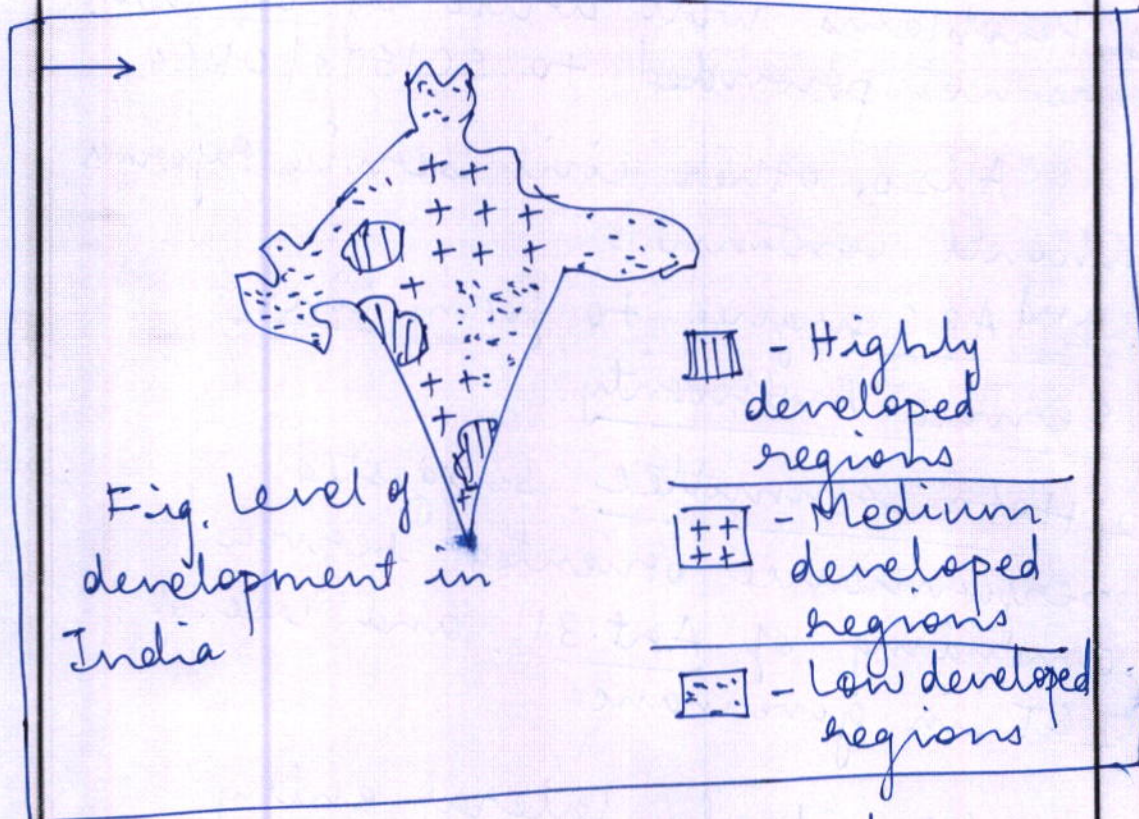 Fig. Level of
development in
India
- Highly
developed
regions
- Medium
developed
regions
- Low developed
regions